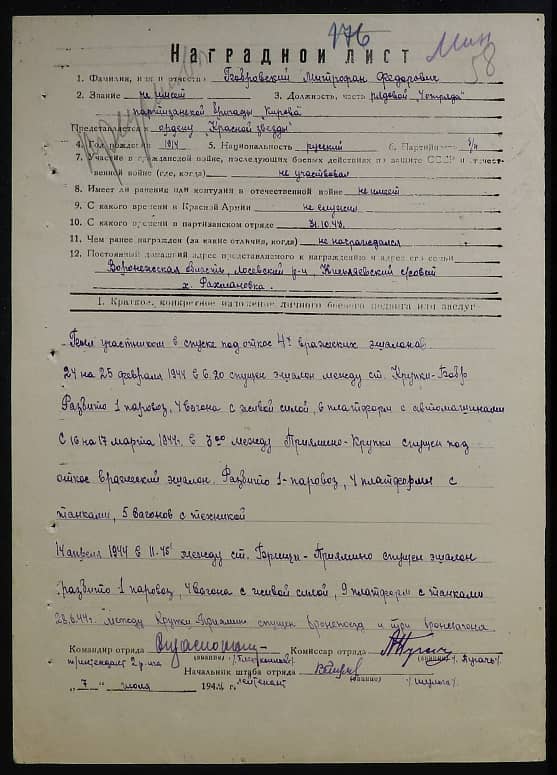 176
Мин
58
НАГРАДНОЙ ЛИСТ
1. Фамилия, имя и отчество Бобровский Митрофан Федорович
2. Звание не имеет 3. Должность, часть рядовой
партизанской бригады "Кирова"
Представляется к ордену "Красной звезды"
4. Год рождения 1914 5. Национальность русский 6. Партийность б/п
7. Участие в гражданской войне, последующих боевых действиях по защите СССР и отечест-
венной войне (где, когда) не участвовал
8. Имеет ли ранения или контузии в отечественной войне не имеет
9. С какого времени в Красной Армии не служил
10. С какого времени в партизанском отряде 31.10.43.
11. Чем ранее награжден (за какие отличия, когда) не награждался
12. Постоянный домашний адрес представляемого к награждению и адрес его семьи
Воронежская область, Лосевский р-н, сельсовет
х. Рахмановка.
1. Краткое, конкретное изложение личного боевого подвига или заслуг
Был участником в спуске под откос 4х вражеских эшалонов
24 на 25 февраля 1944 в 6.20 спущен эшалон между ст. Крупки-Бобр
Разбито 1 паровоз, 4 вагона с живой силой, 6 платформ с автомашинами
С 16 на 17 марта 1944г. в 3.00 между Приямино-Крупки спущен под
откос вражеский эшалон. Разбито 1-паровоз, 4 платформы с
танками, 5 вагонов с техникой
14 апреля 1944 в 11.45 между ст. Приямино спущен эшалон
разбито 1 паровоз, 4 вагона с живой силой, 9 платформ с танками
23.6.44г. между Крупки-Приямино спущен бронепоезд и три броневагона
Командир отряда Комиссар отряда
интендант 2 ранга (звание) (звание)
Начальник штаба отряда
лейтенант (звание)
„ 7 " июля 1944 г.